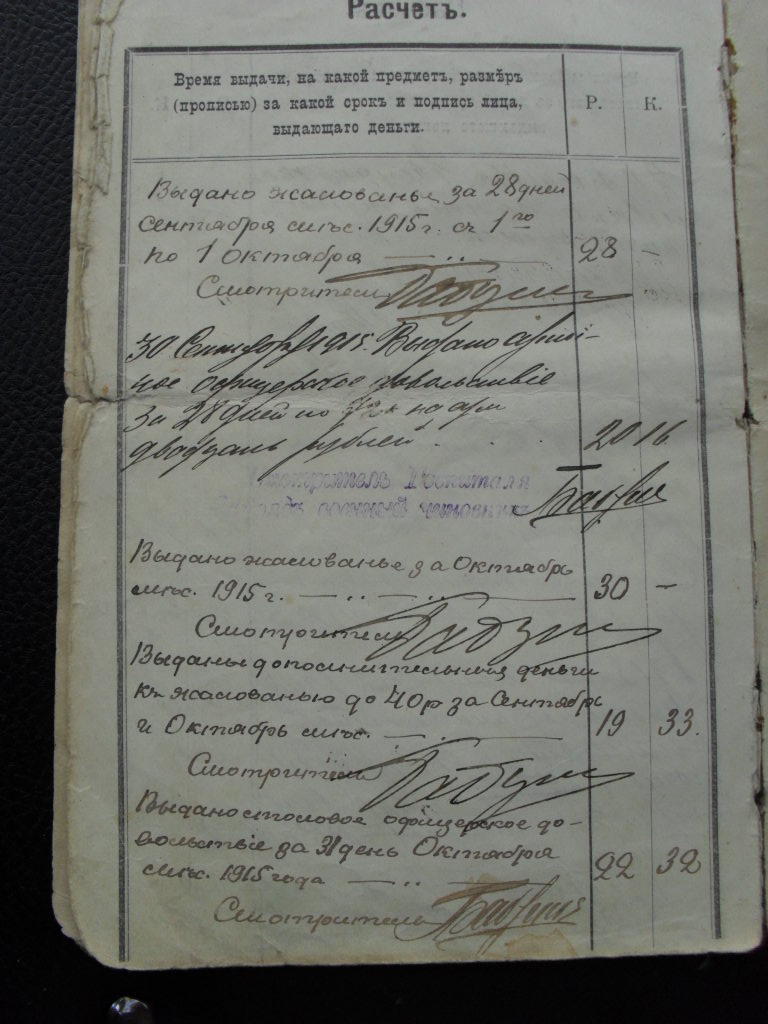 Расчетъ.
Время выдачи, на какой предметъ, размѣръ
(прописью) за какой срокъ и подпись лица,
выдающаго деньги.
Р. К.
Выдано жалованье за 28 дней
Сентября мѣс. 1915 г. съ 1го
по 1 Октября 28 –
Смотритель
30 Сентября 1915. Выдано
офицерское довольствіе
за 28 дней по 72 к на
двадцать рублей 20 16
Смотритель Госпиталя
военный чиновникъ
Выдано жалованье за Октябрь
мѣс. 1915 г. 30 –
Смотритель
Выданы дополнительныя деньги
къ жалованью до 40 р за Сентябрь
и Октябрь мѣс. 19 33.
Смотритель
Выдано столовое офицерское до-
вольствіе за 31 день Октября
мѣс. 1915 года 22 32
Смотритель